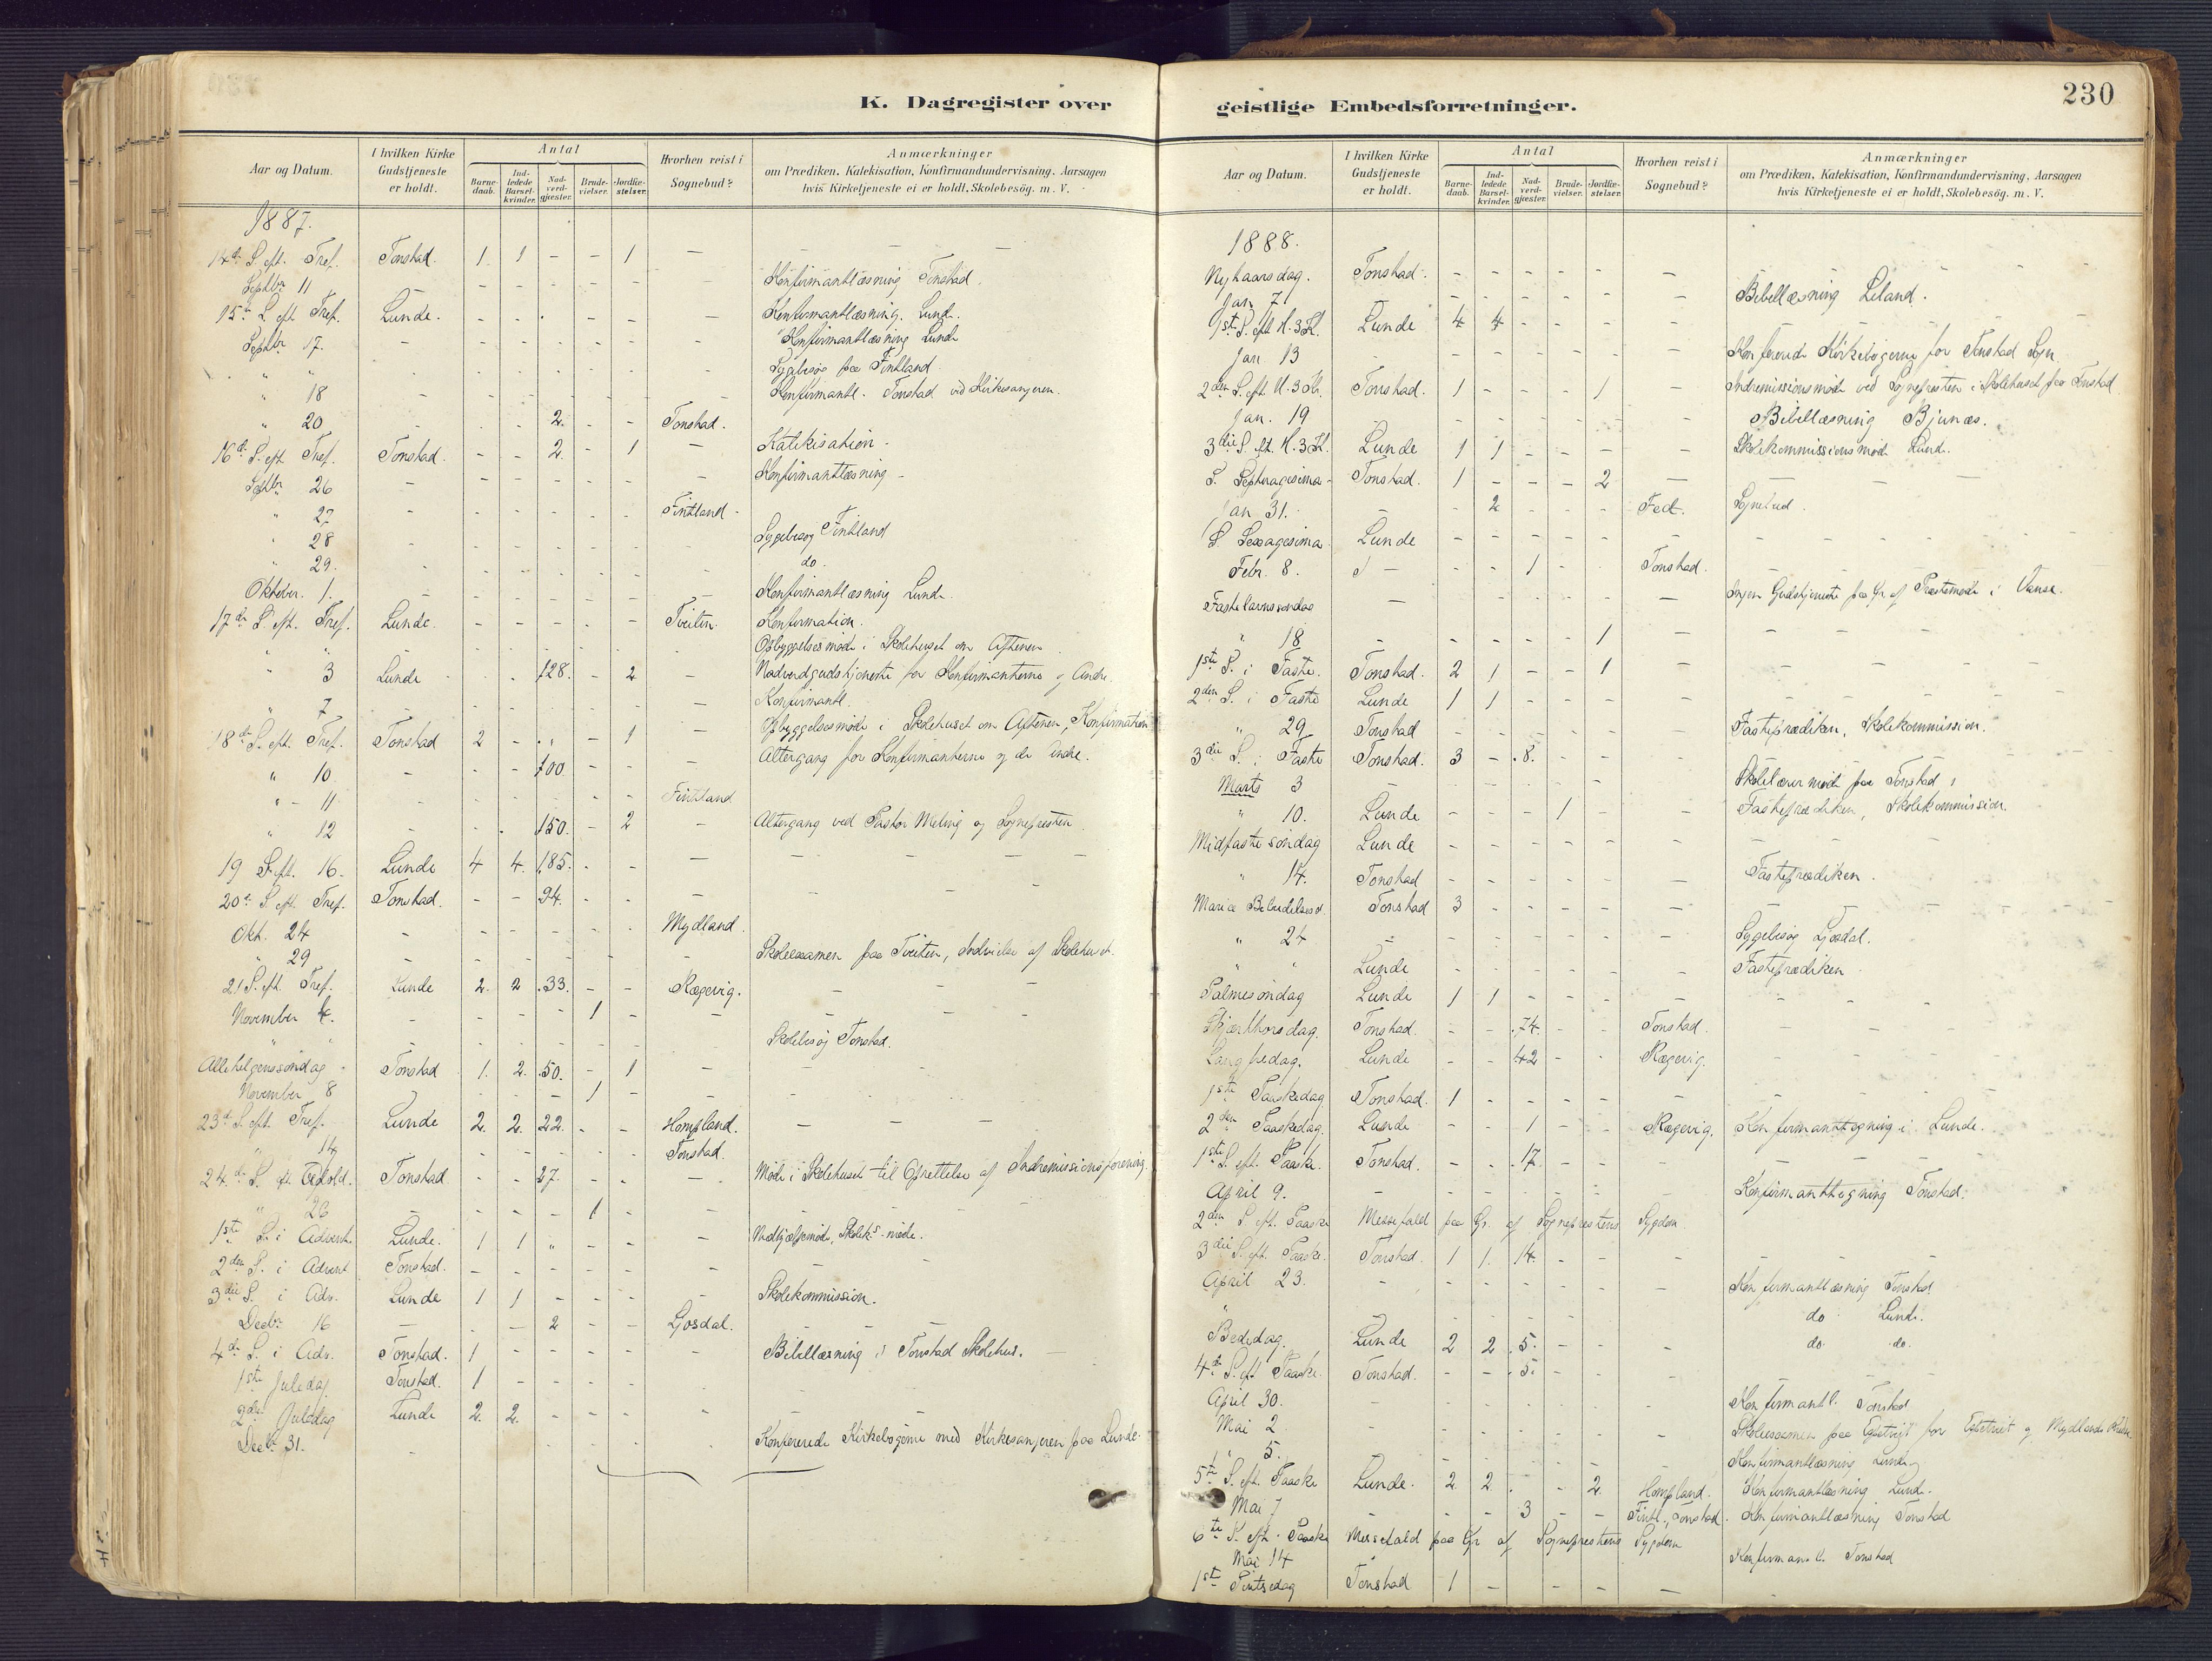 K. Dagregister over
Aar og Datum.
I hvilken Kirke Gudstjeneste er holdt.
Antal
Barne-daab.
Ind-ledede Barsel-kvinder.
Nad-verd-gjester.
Brude-vielser.
Jordfæ-stelser.
Hvorhen reist i Sognebud?
Anmærkninger
om Prædiken, Katekisation, Konfirmandundervisning, Aarsagen
hvis Kirketjeneste ei er holdt, Skolebesög. m. V.
1887.
14de S. eft. Tref. Tonstad. 1 1 - - 1 -
Septbr 11 - - - - - Konfirmantlæsning Tonstad.
15de S. eft. Tref. Lunde. - - - - - Konfirmantlæsning. Lund.
Septbr 17. - - - - - - Konfirmantlæsning Lunde
" " - - - - - Sygebesøg paa Fintland.
" 18 - - - - - - Konfirmantl. Tonstad ved Kirkesangeren.
" 20 - - - 2. - - Tonstad.
16de S. eft. Tref. Tonstad. - - 2. - 1 - Katekisation -
Septbr 26 - - - - - - Konfirmantlæsning -
" 27 - - - - - - Fintland -
" 28 - - - - - - Sygebesøg Fintland
" 29. - - - - - - do.
Oktober. 1. - - - - - - Konfirmantlæsning Lunde.
17de S. eft. Tref. Lunde. - - - - - Tveiten. Konfirmation.
" " - - - - - Opbyggelsesmøde i Skolehuset om Aftenen.
" 3 Lunde - - 128. - 2 - Nadverdgudstjeneste for Konfirmanterne og Andre.
" 7 - - - - - - Konfirmantl.
18de S. eft. Tref. Tonstad 2 - - - 1 - Opbyggelsesmøde i Skolehuset om Aftenen, Konfirmation
" 10 - - - 100 - - - Altergang for Konfirmanterne og de Andre.
" - 11 - - - Fintland
" 12 - - - 150. - 2 - Altergang ved Pastor Meling og Sognepresten
19 S. eft. 16. Lunde 4 4. 185. - - -
20de S. eft. Tref. Tonstad. - - 94. - - -
Okt. 24 - - - - - - Mydland.
" 29 - - - - - - Skoleexamen paa Tveiten, Indvielse af Skolehuset.
21 S. eft. Tref. Lunde 2. 2 33. - - Rægevig.
November 4. - - - - 1 - -
" " - - - - - - Skolebesøg Tonstad.
Allehelgenssøndag Tonstad 1. 2. 50. - 1 -
November 8 - - - 1 - -
23de S. eft. Tref. Lunde 2. 2. 22. - - Hompland.
" 14 - - - - - Tonstad.
24de S. eft. Tonstad - - 27. - - - Møde i Skolehuset til Oprettelse af Indremissionsforening.
" 26 - - - - 1 - -
1ste S. i Advent. Lunde. 1 1 " - - - Skolek.s-møde.
2den S. i Advent Tonstad. - - - - - -
3die S. i Adv. Lunde 1 1 - - - - Skolekommission.
Decbr. 16 - - - 2 - - Ljosdal.
4de S. i Adv. Tonstad. 1 - - - - - Bibellæsning i Tonstad Skolehus. -
1ste Juledag Tonstad. 1 - - - - -
2den Juledag Lunde 2. 2. - - - -
Decbr. 31. - - - - - - Konfererede Kirkebøgerne med Kirkesangeren paa Lunde.
geistlige Embedsforretninger.
230
Aar og Datum.
I hvilken Kirke Gudstjeneste er holdt.
Antal
Barne-daab.
Ind-ledede Barsel-kvinder.
Nad-verd-gjester.
Brude-vielser.
Jordfæ-stelser.
Hvorhen reist i Sognebud?
Anmærkninger
om Prædiken, Katekisation, Konfirmandundervisning, Aarsagen
hvis Kirketjeneste ei er holdt, Skolebesög. m. V.
1888.
Nyhaarsdag. Tonstad. - - - - - -
Jan 7 - - - - - - Bibellæsning Liland.
1ste S. eft. H.3K. Lunde 4 4 - - - -
Jan. 13 - - - - - - Konfererede Kirkebøgerne for Tonstad Sogn
2den S. eft. H.3K. Tonstad. 1 - - - 1 - Indremissionsmøde ved Sognepresten i Skolehuset paa Tonstad
Jan. 19 - - - - - - Bibellæsning Bjunæs.
3die S. eft. H.3K. Lunde 1 1 - - - - Skolekommissionsmøde Lund.
S. Septuagesima - Tonstad. 1 - - - 2 -
Jan 31. - - 2 - - - Fed. Sognebud.
S Sexagesima Lunde - - - - - -
Febr. 8. - - - 1 - Tonstad.
Fastelavnssøndag - - - - - - Ingen Gudstjeneste paa Gr. af Prestemøde i Vanse.
" 18 - - - - - 1 -
1ste S. i Faste. Tonstad. 2 1 - - 1 -
2den S. i Faste Lunde 1 1 - - - -
" 29 Tonstad - - - - - - Fasteprædiken. Skolekommission.
3die S. i Faste Tonstad. 3 - 8. - - -
Marts 3 - - - - Skolelærermøde paa Tonstad
" 10. Lunde - - - 1 - - Fasteprædiken, Skolekommission.
Midfastesøndag Lunde - - - - -
" 14. Tonstad - - - - - - Fasteprædiken.
Mariæ Bebudelsesd. Tonstad 3 - - - - -
" 24 - - - - - - Sygebesøg Ljosdal.
" " Lunde - - - - - - Fasteprædiken
Palmesøndag Lunde 1 1 - - - -
Skjærthorsdag. Tonstad. - - 74. - - Tonstad.
Langfredag. Lunde - - 42 - - Rægevig.
1ste Paaskedag Tonstad. 1 - - - -
2den Paaskedag. Lunde - - 1 - - Rægevig. Konfirmanttegning i Lunde.
1ste S. eft. Paaske. Tonstad. - - 17. - - -
April 9. - - - - - - Konfirmanttegning Tonstad.
2den S. eft. Paaske Messefald paa Gr. af Sognepresten Sygdom
3die S. eft. Paaske. Tonstad 1 1. 14. - - -
April 23. - - - - - - Konfirmantlæsning Tonstad
" - - - - - do Lunde.
Bededag. Lunde 2 2 5. - - - do. do.
4de S. eft. Paaske. Tonstad. - - 5. - - -
April 30. - - - - - - Konfirmantl. Tonstad
Mai 2 - - - - - - Skoleexamen paa for og Mydlands Kreds
" 5. - - - - - Konfirmantlæsning Lunde
5te S. eft. Paaske Lunde. 2 2 - - 2 Hompland. Konfirmantlæsning Lunde.
Mai 7 - - - 3 - - Fintl., Tonstad. Konfirmantlæsning Tonstad
6te S. eft. Paaske Messefald paa Gr af Sogneprestens Sygdom
Mai 14 Konfirmantl. Tonstad
1ste Pintsedag Tonstad 1 - - - - -